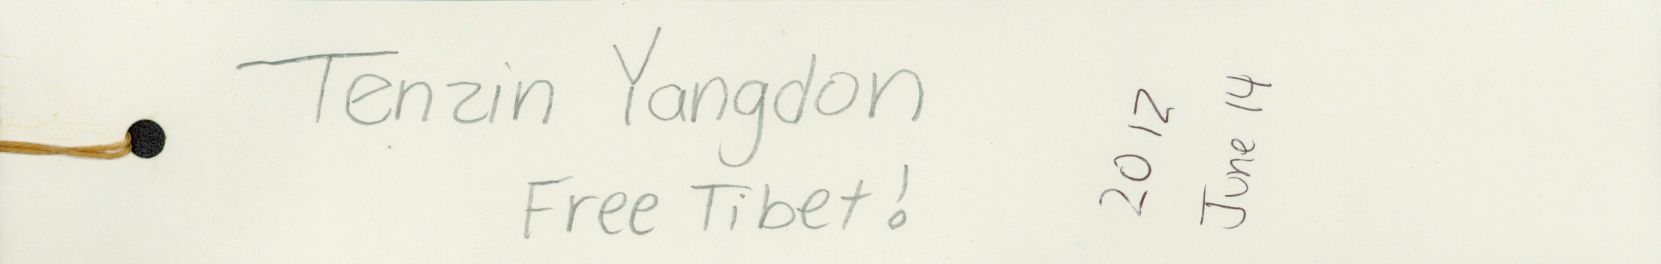 Tenzin Yangdon
Free Tibet!
2012
June 14